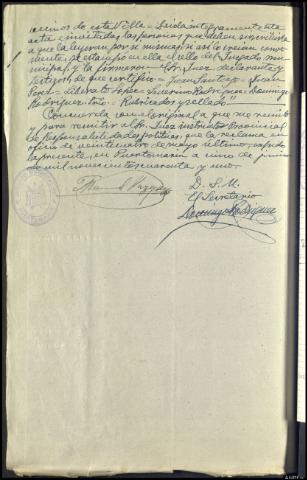 vecinos de esta Villa = Leida integramente esta
acta e invitadas las personas que deben suscribirla
a que la leyeran por si mismas, si asi lo creian conve-
niente. Se estampó en ella el sello del Juzgado mu-
nicipal y la firmaron el Sr. Juez, declarantes y
testigos de que certifico = Juan Santiago = Juan
Perez = Liberato Lopez = Saturnino Rodriguez = Domingo
Rodriguez Srto. = Rubricados y sellado."
Concuerda con el original a que me remito
y para remitir al Sr. Juez instructor Provincial
de Responsabilidades politicas, que la reclama en
oficio de veinticuatro de mayo ultimo, expido
la presente, en Puertomarin a cinco de junio
de mil novecientos cuarenta y uno.
D. S. M.
El Secretario
Domingo Rodriguez